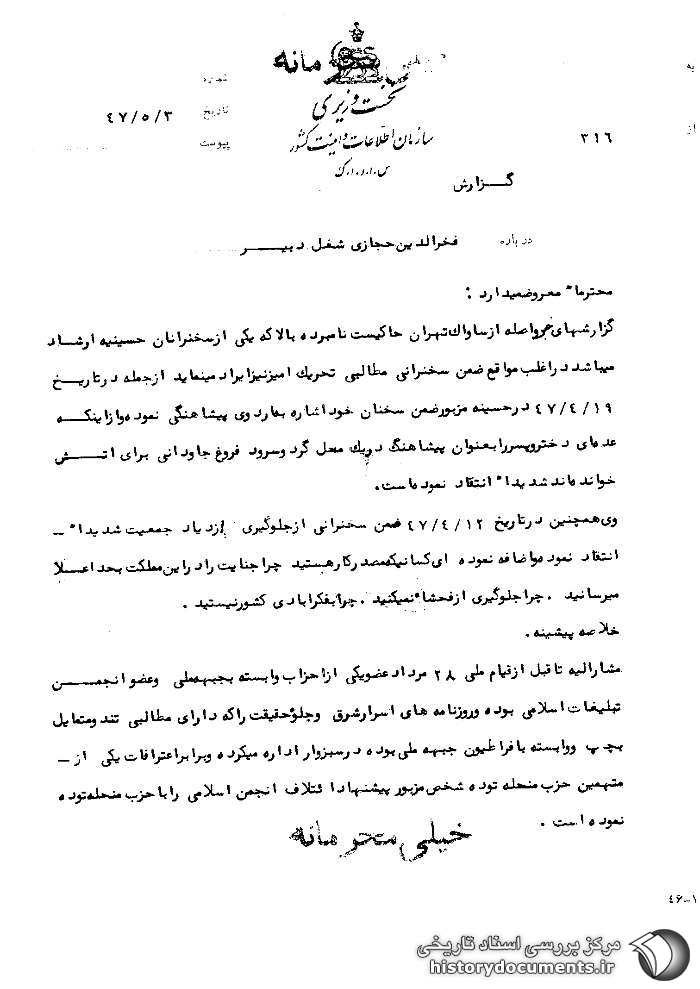 خیلی محرمانه
نخست وزیری
سازمان اطلاعات و امنیت کشور
س.ا.و.ا.ک
به
از
۳۱۶
شماره
تاریخ ۴۷/۵/۳
پیوست
گزارش
درباره فخرالدین حجازی شغل دبیر
محترما" معروضمیدارد :
گزارشهای واصله از ساواک تهران حاکیست نامبرده بالا که یکی از سخنرانان حسینیه ارشاد
میباشد در اغلب مواقع ضمن سخنرانی مطالبی تحریک امیز نیز ایراد مینماید از جمله در تاریخ
۴۷/۴/۱۹ در حسینه مزبور ضمن سخنان خود اشاره به اردوی پیشاهنگی نموده و از اینکه
عده‌ای دختر و پسر را بعنوان پیشاهنگ در یک محل گرد و سرود فروغ جاودانی برای اتش
خوانده‌اند شدیدا" انتقاد نموده است.
وی همچنین در تاریخ ۴۷/۴/۱۲ ضمن سخنرانی از جلوگیری ازدیاد جمعیت شدیدا" –
انتقاد نموده و اضافه نموده ای کسانیکه مصدر کار هستید چرا جنایت را در این مملکت بحد اعلا
میرسانید . چرا جلوگیری از فحشاء نمیکنید . چرا بفکر ابادی کشور نیستید .
خلاصه پیشینه .
مشارالیه تا قبل از قیام ملی ۲۸ مرداد عضو یکی از احزاب وابسته بجبهه ملی وعضو انجمن
تبلیغات اسلامی بوده و روزنامه های اسرار شرق وجلوه حقیقت را که دارای مطالبی تند و متمایل
بچپ و وابسته بافراطیون جبهه ملی بوده در سبزوار اداره میکرده و برابر اعترافات یکی از –
متهمین حزب منحله توده شخص مزبور پیشنهاد ائتلاف انجمن اسلامی را با حزب منحله توده
نموده است .
خیلی محرمانه
۴۶-۱
مرکز بررسی اسناد تاریخی
historydocuments.ir